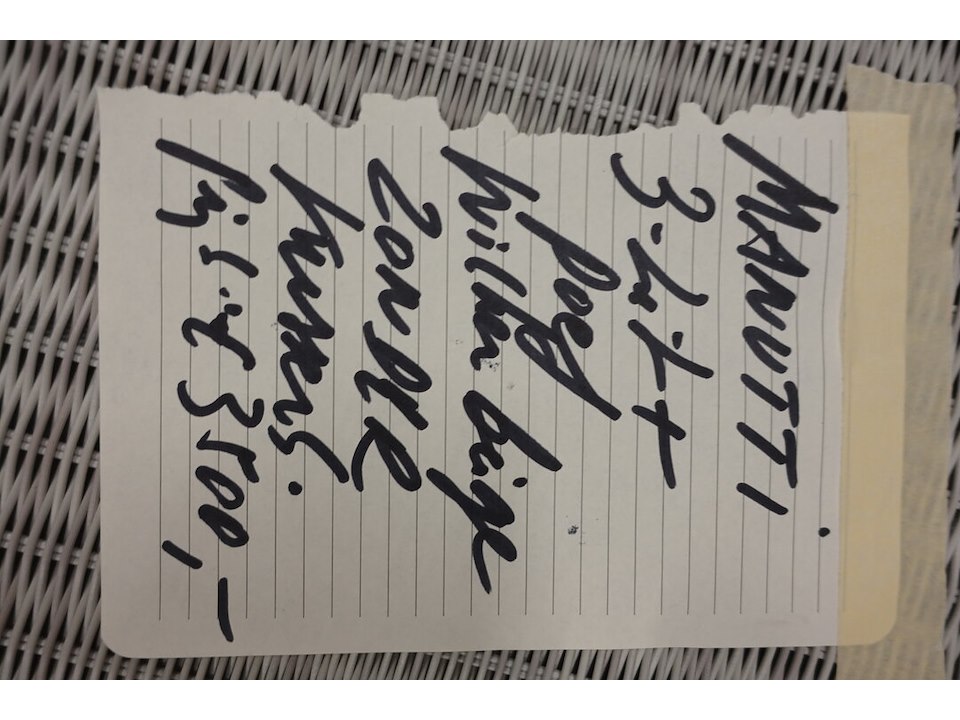 MANUTTI.
3-zit +
poef
beige
ZONDER
kussens.
prijs: € 3500,-